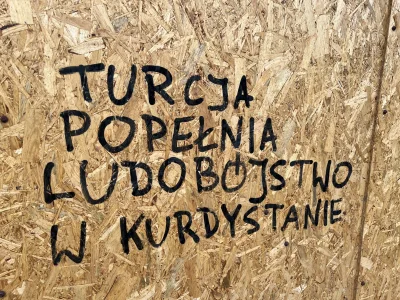 TURCJA
POPEŁNIA
LUDOBÓJSTWO
W KURDYSTANIE